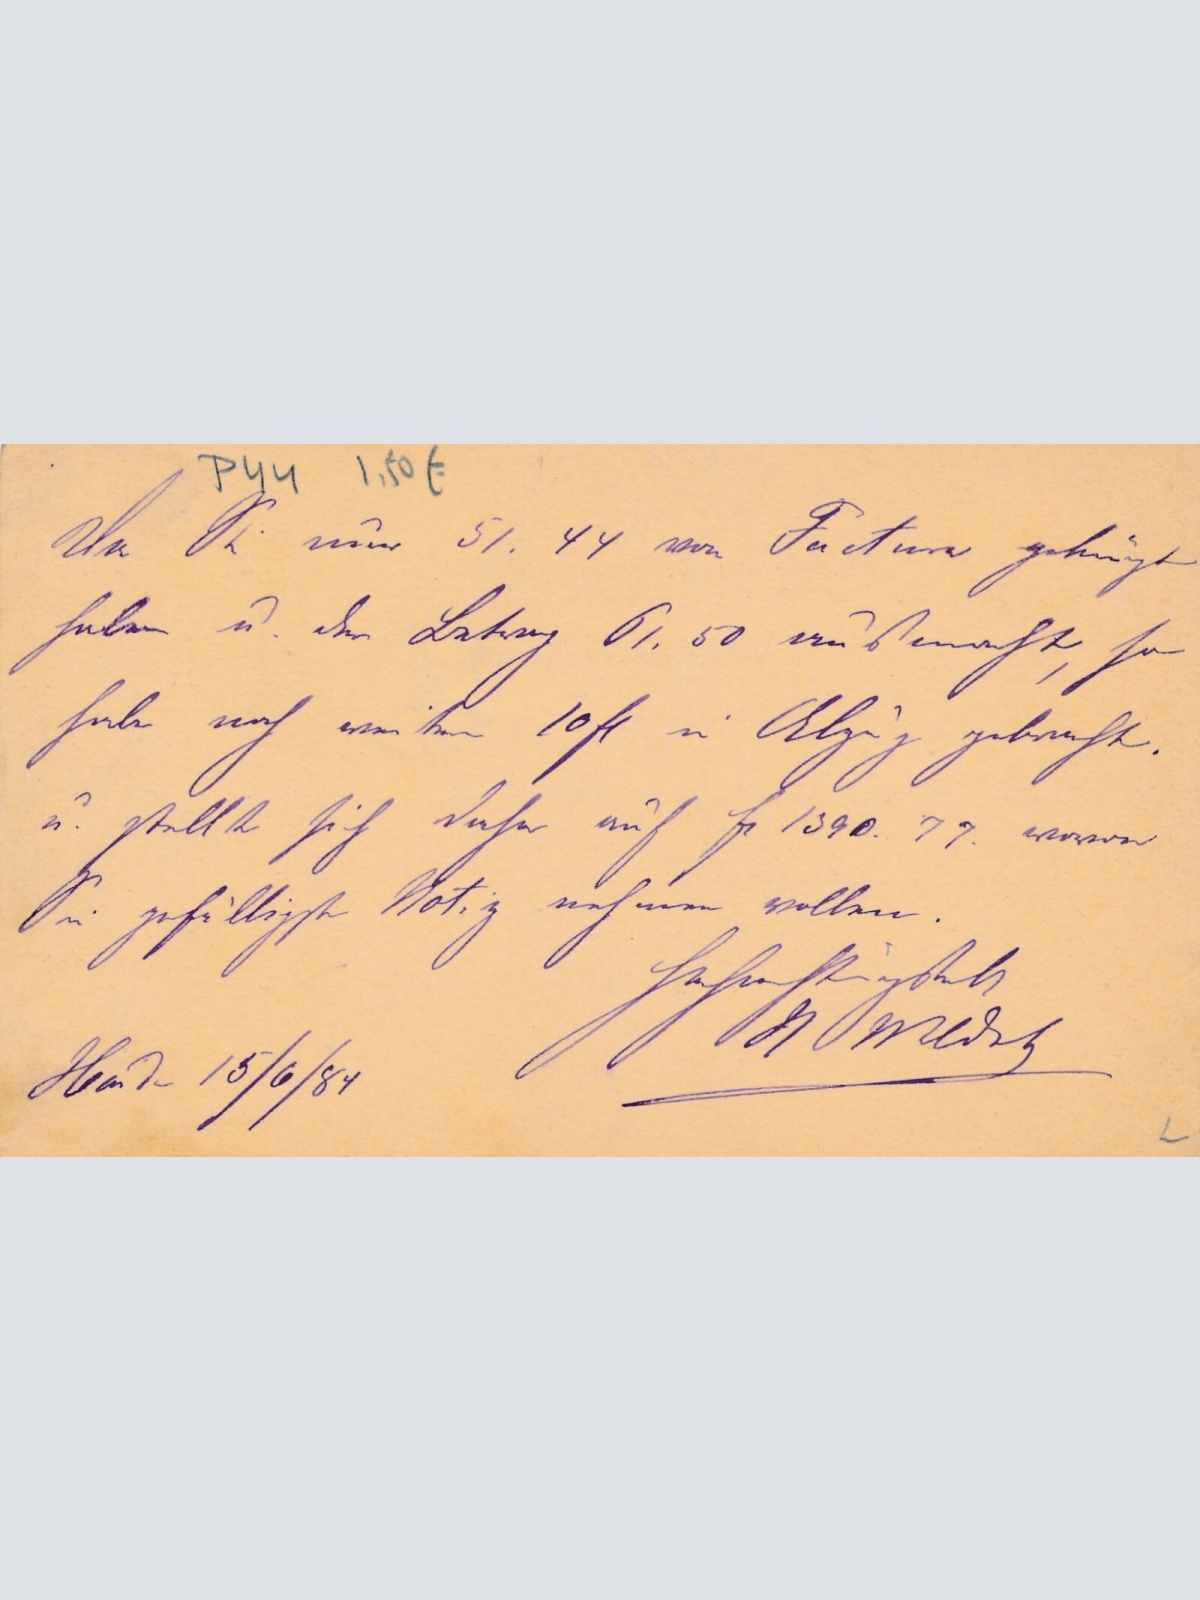 P44 1,50 €
Da Sie nur 51. 44 von Factura gekürzt
haben u. der Betrag 61. 50 ausmacht, so
habe noch weitere 10 fl in Abzug gebracht.
u. stellt sich daher auf fr 1390. 77. wovon
Sie gefälligst Notiz nehmen wollen.
Hochachtungsvoll
15/6/84
L